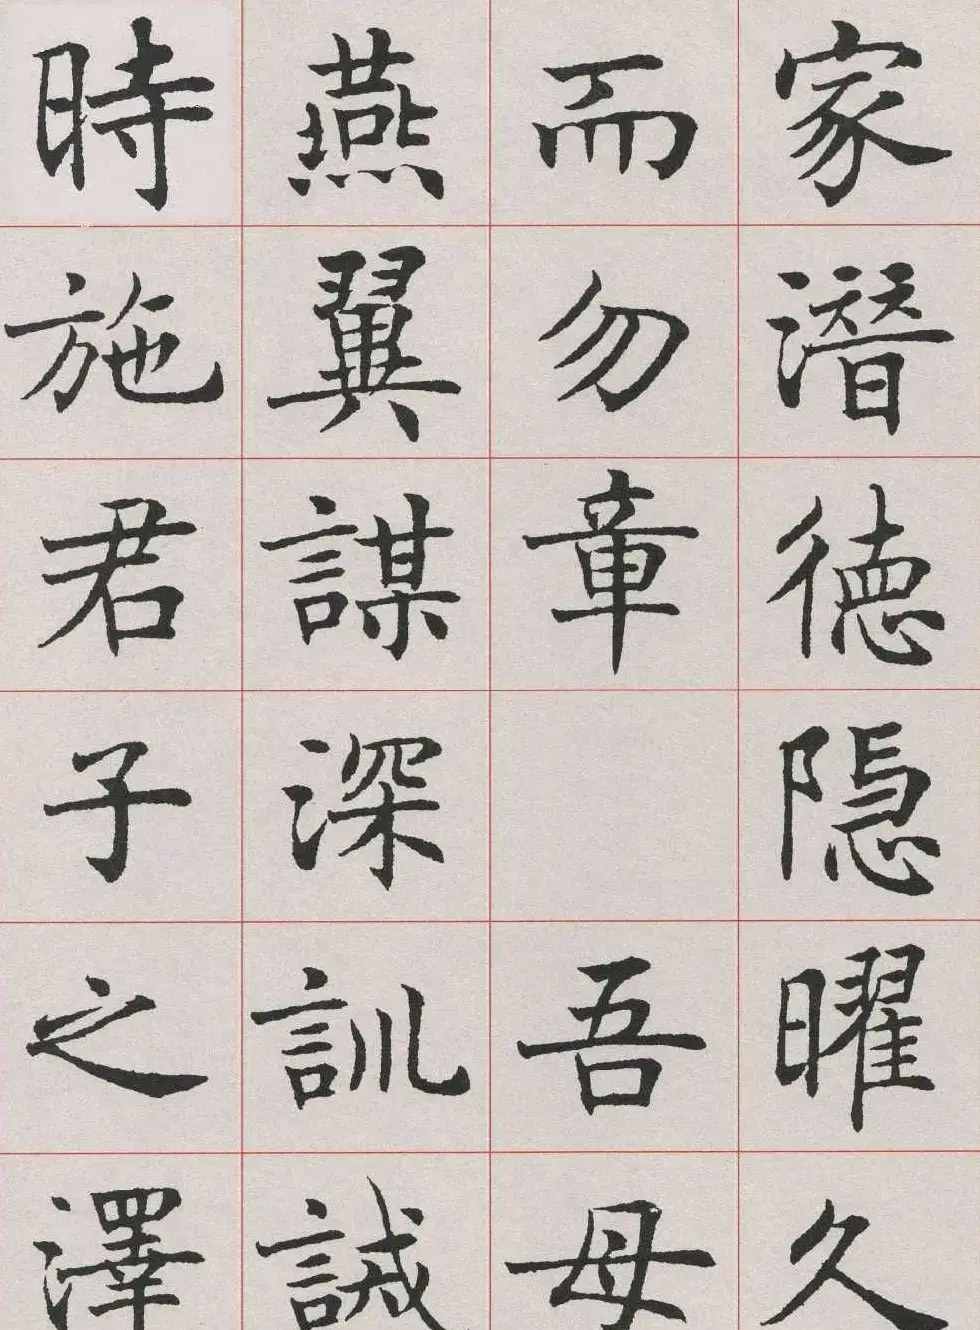 家潛德隐曜久
而勿章 吾母
燕翼謀深訓誡
時施君子之澤